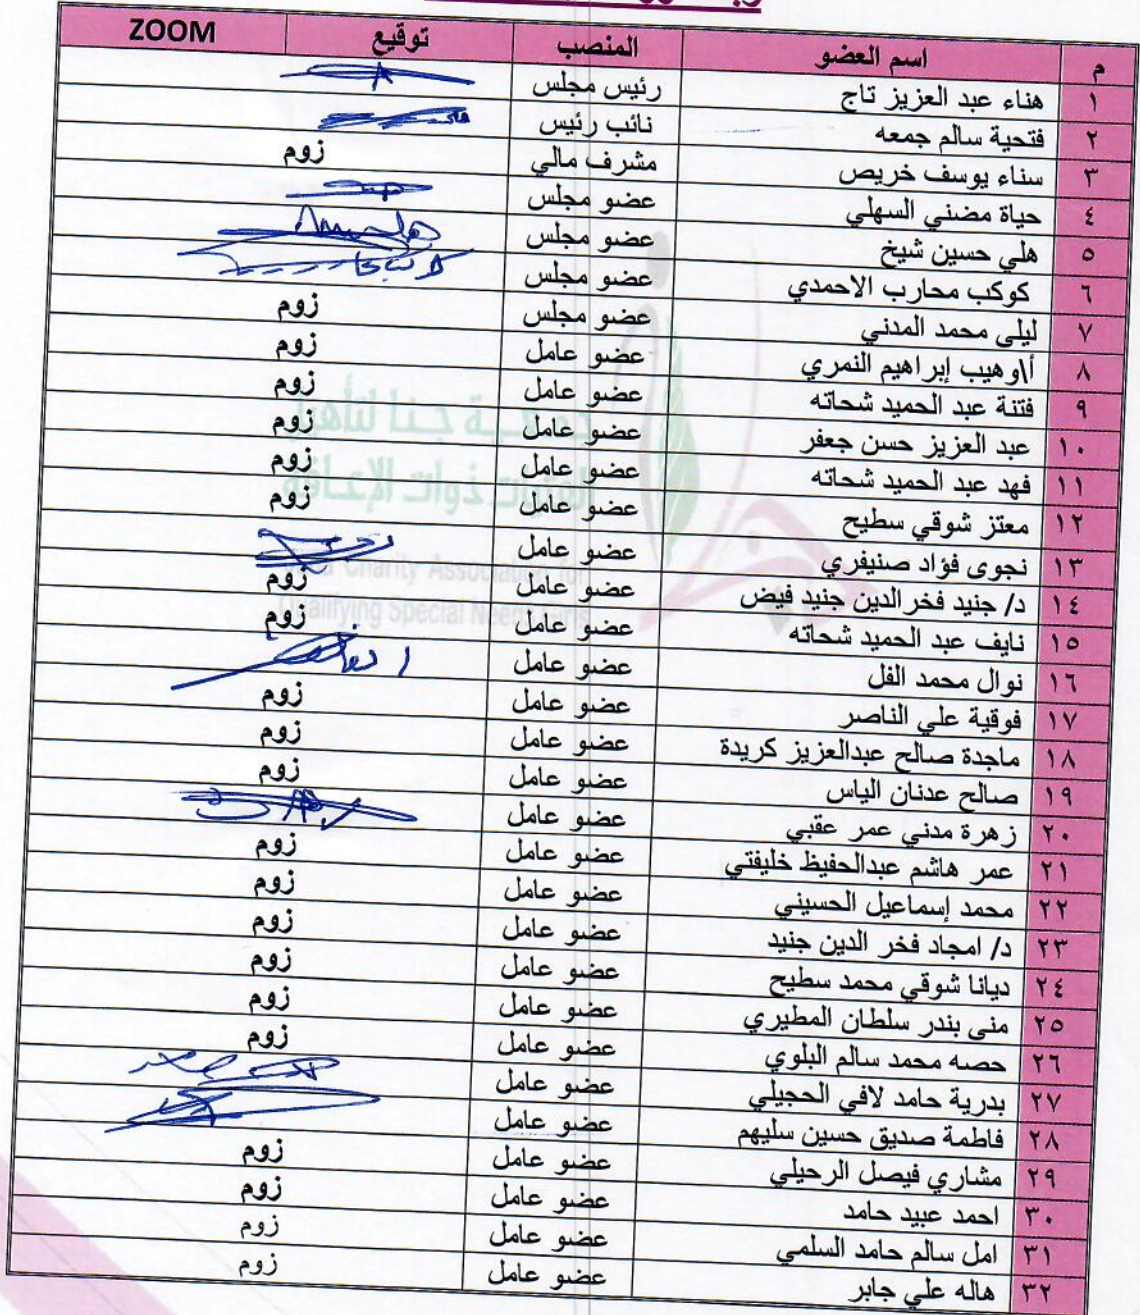 م اسم العضو المنصب توقيع ZOOM
١ هناء عبد العزيز تاج رئيس مجلس
٢ فتحية سالم جمعه نائب رئيس
٣ سناء يوسف خريص مشرف مالي زوم
٤ حياة مضني السهلي عضو مجلس
٥ هلي حسين شيخ عضو مجلس
٦ كوكب محارب الاحمدي عضو مجلس
٧ ليلى محمد المدني عضو مجلس زوم
٨ أ\وهيب إبراهيم النمري عضو عامل زوم
٩ فتنة عبد الحميد شحاته عضو عامل زوم
١٠ عبد العزيز حسن جعفر عضو عامل زوم
١١ فهد عبد الحميد شحاته عضو عامل زوم
١٢ معتز شوقي سطيح عضو عامل زوم
١٣ نجوى فؤاد صنيفري عضو عامل
١٤ د/ جنيد فخرالدين جنيد فيض عضو عامل زوم
١٥ نايف عبد الحميد شحاته عضو عامل زوم
١٦ نوال محمد الفل عضو عامل
١٧ فوقية علي الناصر عضو عامل زوم
١٨ ماجدة صالح عبدالعزيز كريدة عضو عامل زوم
١٩ صالح عدنان الياس عضو عامل زوم
٢٠ زهرة مدني عمر عقبي عضو عامل
٢١ عمر هاشم عبدالحفيظ خليفتي عضو عامل زوم
٢٢ محمد إسماعيل الحسيني عضو عامل زوم
٢٣ د/ امجاد فخر الدين جنيد عضو عامل زوم
٢٤ ديانا شوقي محمد سطيح عضو عامل زوم
٢٥ منى بندر سلطان المطيري عضو عامل زوم
٢٦ حصه محمد سالم البلوي عضو عامل زوم
٢٧ بدرية حامد لافي الحجيلي عضو عامل
٢٨ فاطمة صديق حسين سليهم عضو عامل
٢٩ مشاري فيصل الرحيلي عضو عامل زوم
٣٠ احمد عبيد حامد عضو عامل زوم
٣١ امل سالم حامد السلمي عضو عامل زوم
٣٢ هاله علي جابر عضو عامل زوم
جمعية جنا لتأهيل
الفتيات ذوات الإعاقة
Charity Association for
Qualifying Special Needs Girls